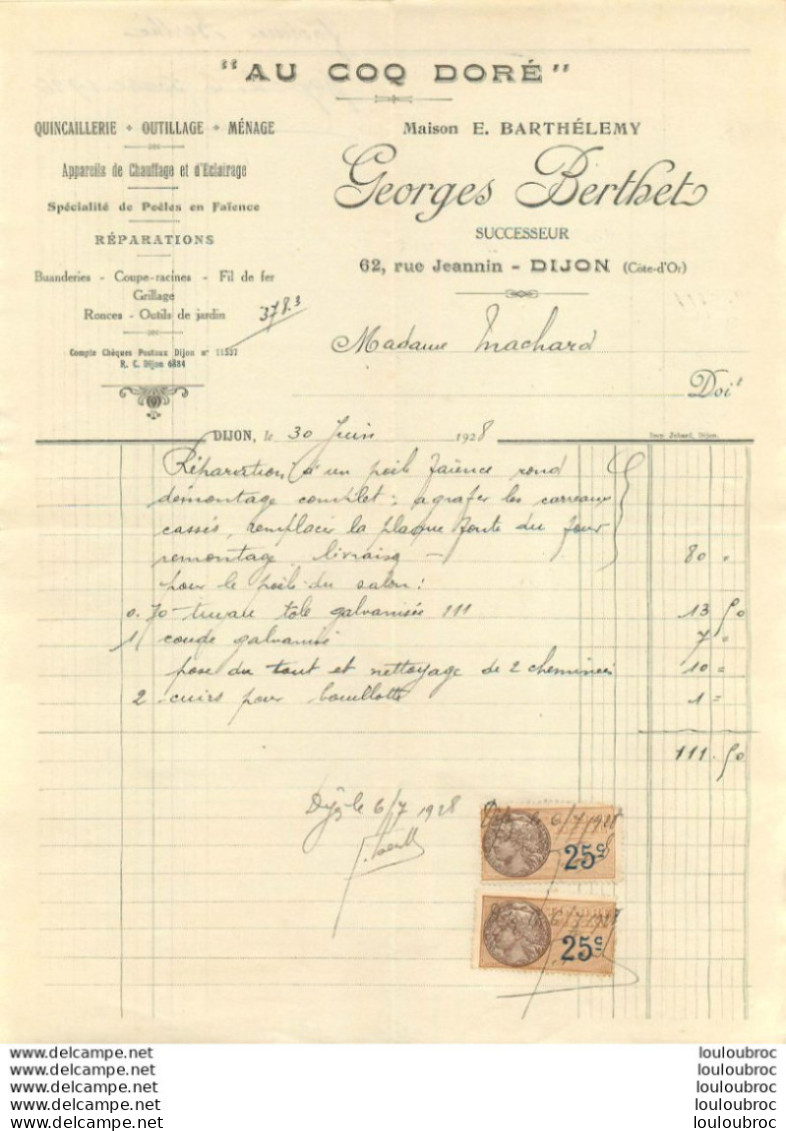 "AU COQ DORÉ"
QUINCAILLERIE + OUTILLAGE + MÉNAGE
Appareils de Chauffage et d'Eclairage
Spécialité de Poêles en Faïence
RÉPARATIONS
Buanderies - Coupe-racines - Fil de fer
Grillage
Ronces - Outils de jardin
378.3
Compte Chèques Postaux Dijon n° 11537
R. C. Dijon 6884
Maison E. BARTHÉLEMY
Georges Berthet
SUCCESSEUR
62, rue Jeannin - DIJON (Côte-d'Or)
Madame Machard
Doit
DIJON, le 30 Juin 1928
Imp. Jobard, Dijon.
Réparation d'un poêle faïence rond
démontage complet: agrafer les carreaux
cassés, remplacer la plaque fonte du four
remontage, livraison — 80 "
pour le poêle du salon:
0.70 tuyau tôle galvanisée 111 13 50
1 coude galvanisé 7 "
pose du tout et nettoyage de 2 cheminées 10 =
2 cuirs pour bouillotte 1 =
111.50
le 6/7 1928
le 6/7/1928
25c
6/7/1928
25c
www.delcampe.net louloubroc
www.delcampe.net louloubroc
www.delcampe.net louloubroc
www.delcampe.net louloubroc
www.delcampe.net louloubroc